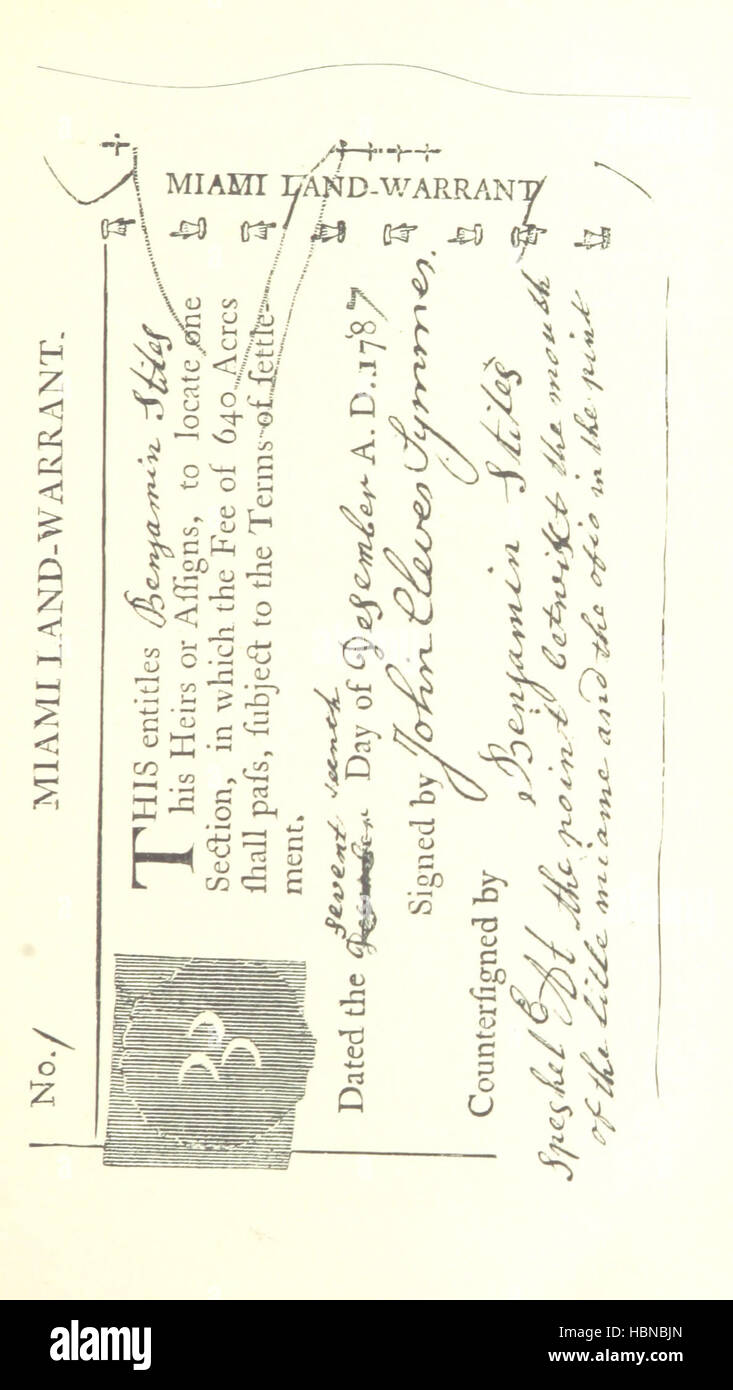 No. 1 MIAMI LAND-WARRANT.
THIS entitles Benjamin Stiles
his Heirs or Aſſigns, to locate one
Section, in which the Fee of 640 Acres
ſhall paſs, ſubject to the Terms of ſettle-
ment.
sevent teenth
Dated the Day of Desember A. D. 1787
Signed by John Cleves Symmes.
Counterſigned by Benjamin Stiles
Speshel At the point betwixt the mouth
of the litle miame and the ohio in the pint
MIAMI LAND-WARRANT
alamy
Image ID: HBNBJN
www.alamy.com